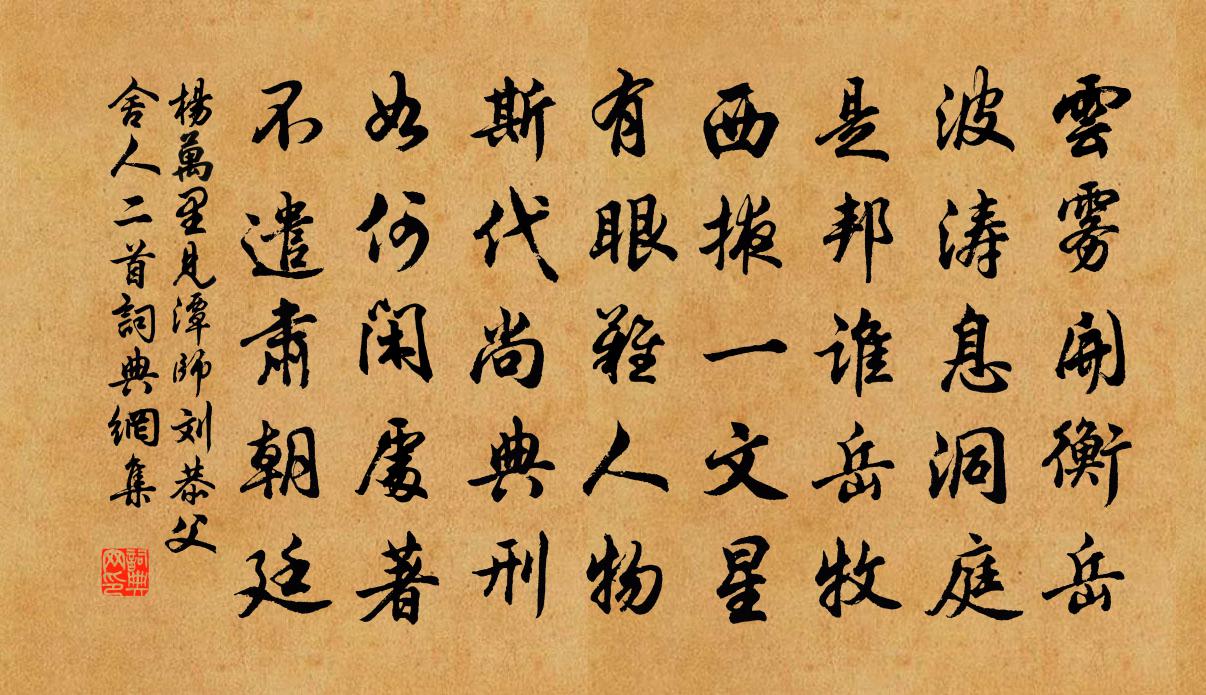 雲雾開衡岳
波涛息洞庭
是邦谁岳牧
西掖一文星
有眼難人物
斯代尚典刑
如何閑處著
不遣肃朝廷
楊萬里見潭師刘恭父
舍人二首詞典網集
詞典网印